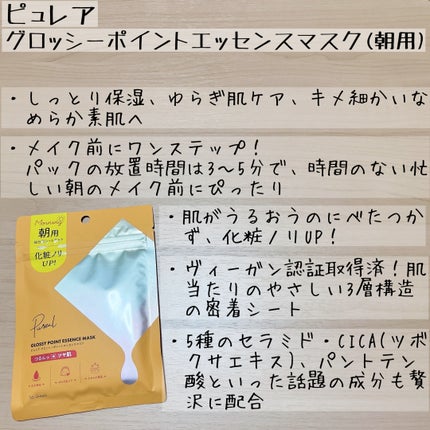 ピュレア
グロッシーポイントエッセンスマスク(朝用)
・しっとり保湿、ゆらぎ肌ケア、キメ細かいな
めらか素肌へ
・メイク前にワンステップ!
パックの放置時間は3〜5分で、時間のない忙
しい朝のメイク前にぴったり
・肌がうるおうのにべたつか
ず、化粧ノリUP!
・ヴィーガン認証取得済!肌
当たりのやさしい3層構造
の密着シート
・5種のセラミド・CICA(ツボ
クサエキス)、パントテン
酸といった話題の成分も贅
沢に配合
Morning
朝用
化粧ノリ
UP!
Pureal
GLOSSY POINT ESSENCE MASK